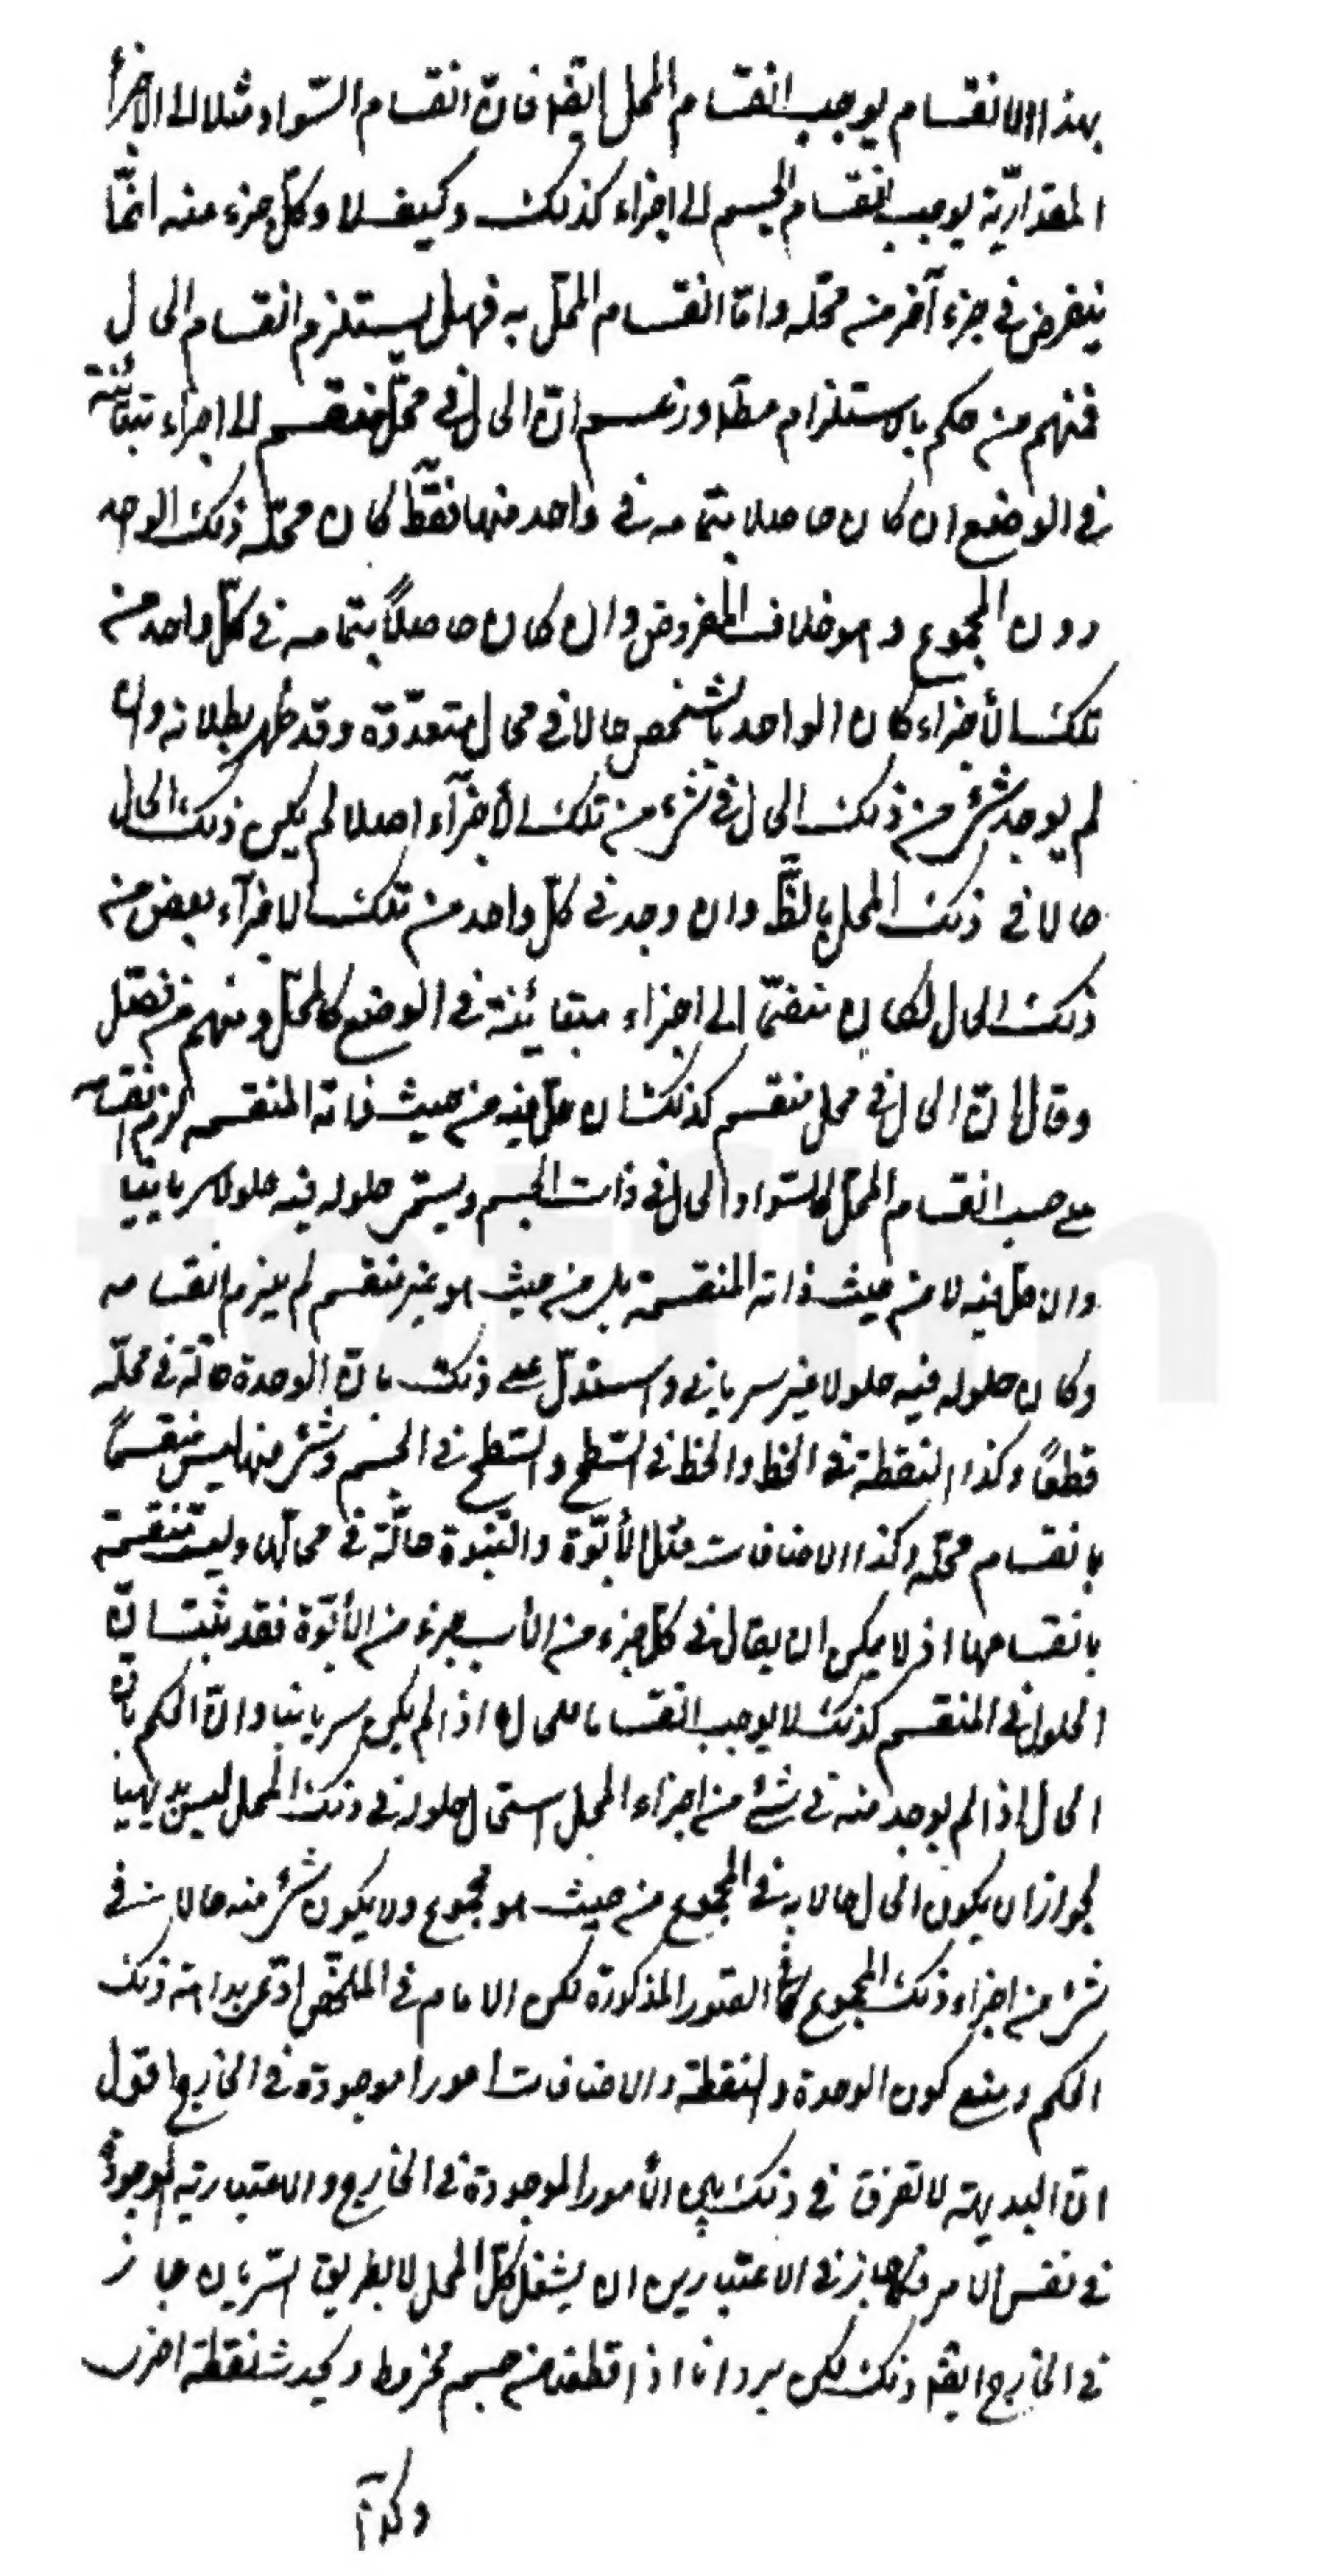 بهذا الانقسام يوجب انقسام المحل ايضا فان انقسام السّواد مثلا الى الاجزأ
المقداريّة يوجب انقسام الجسم الى اجزاء كذلك وكيف لا وكلّ جزء منه انّما
ينفرض فى جزء آخر من محلّه وامّا انقسام المحلّ به فهل يستلزم انقسام الحال
فمنهم من حكم بالاستلزام مطلقا وزعم انّ الحال فى محلّ منقسم الى اجزاء متبائنة
فى الوضع ان كان حاصلا بتمامه فى واحد منها فقط كان محلّه ذلك الواحد
دون المجموع وهو خلاف المفروض وان كان حاصلاً بتمامه فى كلّ واحد من
تلك الأجزاء كان الواحد بالشخص حالا فى محال متعدّدة وقد ظهر بطلانه وان
لم يوجد شئ من ذلك الحال فى شئ من تلك الأجزآء اصلا لم يكن ذلك الحال
حالا فى ذلك المحل بالضّرورة وان وجد فى كلّ واحد من تلك الاجزآء بعض من
ذلك الحال لكان منقسما الى اجزاء متبائنة فى الوضع كالمحلّ ومنهم من فصّل
وقال انّ الحال فى محل منقسم كذلك ان حلّ فيه من حيث ذاته المنقسمه لزم انقسامه
على حسب انقسام المحلّ كالسّواد الحال فى ذات الجسم ويستمر حلوله فيه حلولا سريانيا
وان حلّ فيه لا من حيث ذاته المنقسمة بل من حيث هو غير منقسم لم يلزم انقسامه
وكان حلوله فيه حلولا غير سريانى واستدلّ على ذلك بانّ الوحدة حالّة فى محلّه
قطعًا وكذا النقطة فى الخط والخط فى السّطح والسّطح فى الجسم وشئ منها ليس منقسمًا
بانقسام محلّه وكذا الاضافات مثل الأبوّة والبنوة حالّة فى محالّها وليست منقسمة
بانقسامها اذ لا يمكن ان يقال فى كلّ جزء من الأب جزء من الأبوّة فقد ثبت انّ
الحلول فى المنقسم كذلك لا يوجب انقساما للحال اذا لم يكن سريانيا وانّ الحكم بانّ
الحال اذا لم يوجد منه فى شئ من اجزاء المحل استحال حلوله فى ذلك المحل ليس بديهيا
لجواز ان يكون الحال حالا به فى المجموع من حيث هو مجموع ولا يكون شئ منه حالا فى
شئ من اجزاء ذلك المجموع كما فى الصّور المذكورة لكن الامام فى الملخّص ادّعى بداهة ذلك
الحكم ومنع كون الوحدة والنقطة والاضافات امورا موجودة فى الخارج اقول
انّ البديهة لا تفرق فى ذلك بين الأمور الموجودة فى الخارج والاعتبارية الموجودة
فى نفس الامر فكما جاز فى الاعتباريين ان يشغل كلّ المحل لا بطريق السّريان جاز
فى الخارج ايضا ذلك لكن يرد انا اذا قطعنا من جسم مخروط ويحدث نقطة اخرى